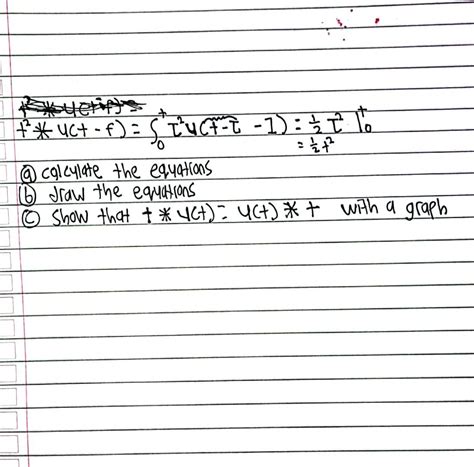 t² * u(t-f) = ∫₀ᵗ τ² u(t-τ -1) = ½ τ² |₀ᵗ
= ½ t²
ⓐ calculate the equations
ⓑ draw the equations
ⓒ show that t * u(t) = u(t) * t with a graph